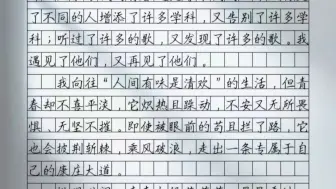 了不同的人增添了许多学科，又告别了许多学
科；听过了许多的歌，又发现了许多的歌。我
遇见了他们，又再见了他们。
我向往“人间有味是清欢”的生活，但青
春却不喜平淡，它炽热且躁动，不安又无所畏
惧、无坚不摧。即使被眼前的苟且拦了路，它
也会披荆斩棘，乘风破浪，走出一条专属于自
己的康庄大道。